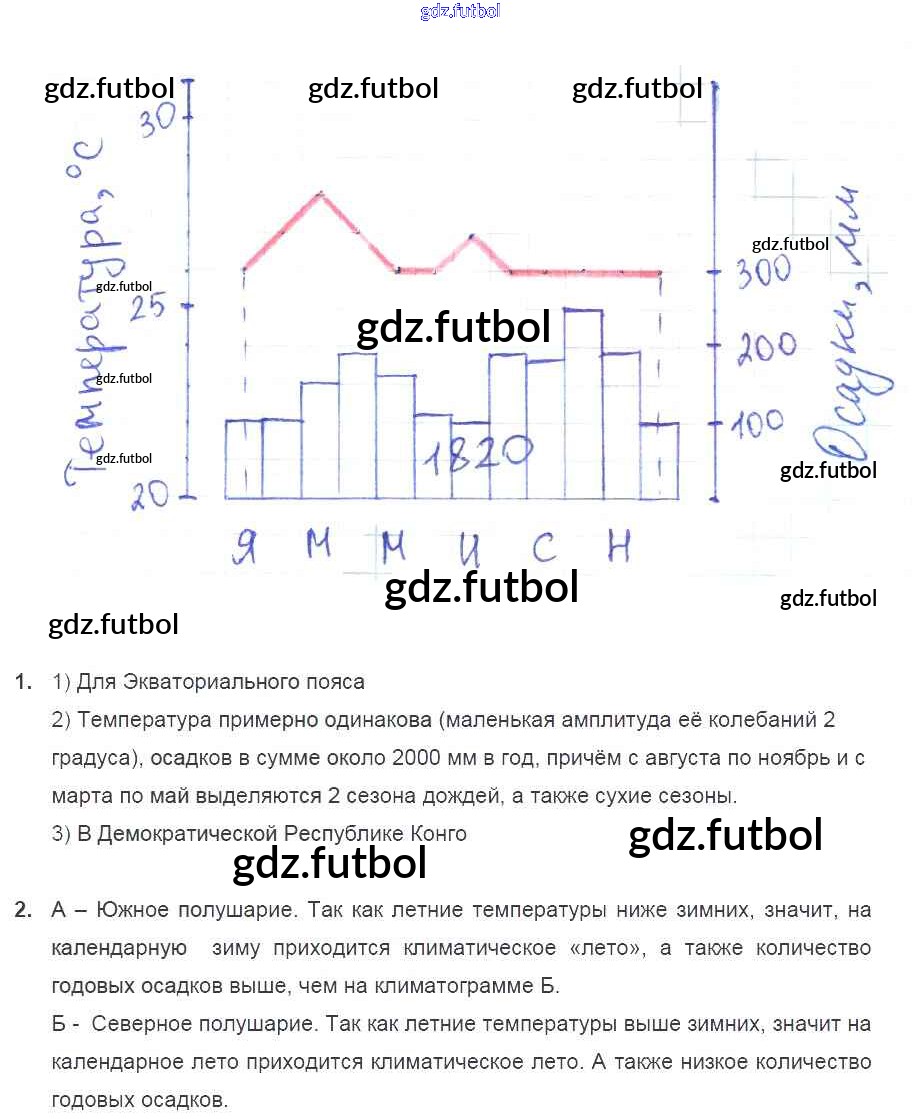 gdz.futbol
gdz.futbol gdz.futbol gdz.futbol
30
Температура, °С
gdz.futbol
300
gdz.futbol
25
gdz.futbol
200
Осадки, мм
gdz.futbol
100
1820
gdz.futbol
gdz.futbol
20
Я М М И С Н
gdz.futbol
gdz.futbol
gdz.futbol
1. 1) Для Экваториального пояса
2) Температура примерно одинакова (маленькая амплитуда её колебаний 2
градуса), осадков в сумме около 2000 мм в год, причём с августа по ноябрь и с
марта по май выделяются 2 сезона дождей, а также сухие сезоны.
3) В Демократической Республике Конго
gdz.futbol
gdz.futbol
2. А – Южное полушарие. Так как летние температуры ниже зимних, значит, на
календарную зиму приходится климатическое «лето», а также количество
годовых осадков выше, чем на климатограмме Б.
Б - Северное полушарие. Так как летние температуры выше зимних, значит на
календарное лето приходится климатическое лето. А также низкое количество
годовых осадков.